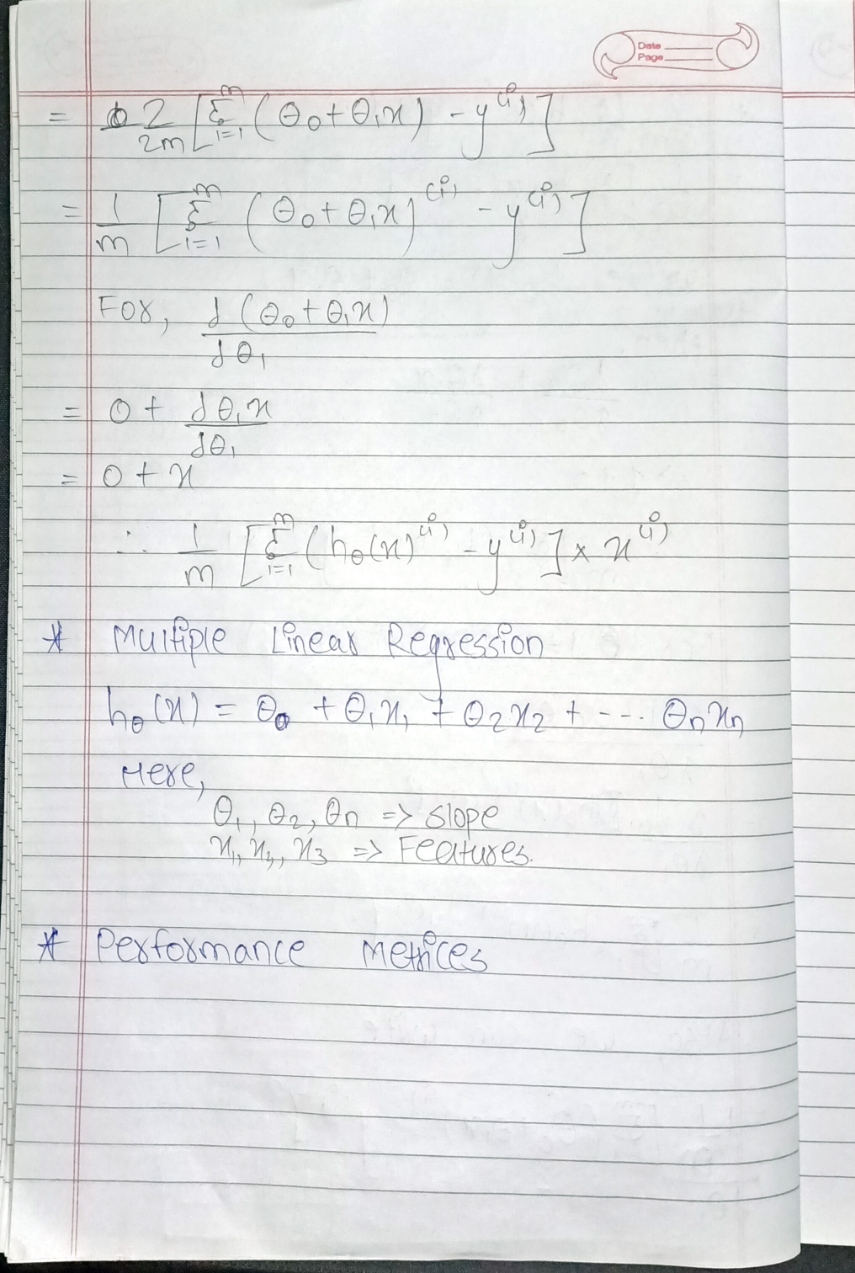 Date
Page
= 2/2m [Σ i=1 m (θ0 + θ1x) - y(i)]
= 1/m [Σ i=1 m (θ0 + θ1x)(i) - y(i)]
For, d(θ0 + θ1x)/dθ1
= 0 + dθ1x/dθ1
= 0 + x
∴ 1/m [Σ i=1 m (hθ(x)(i) - y(i)] × x(i)
* Multiple Linear Regression
hθ(x) = θ0 + θ1x1 + θ2x2 + --- θnxn
Here,
θ1, θ2, θn => slope
x1, x2, x3 => Features.
* Performance Metrices